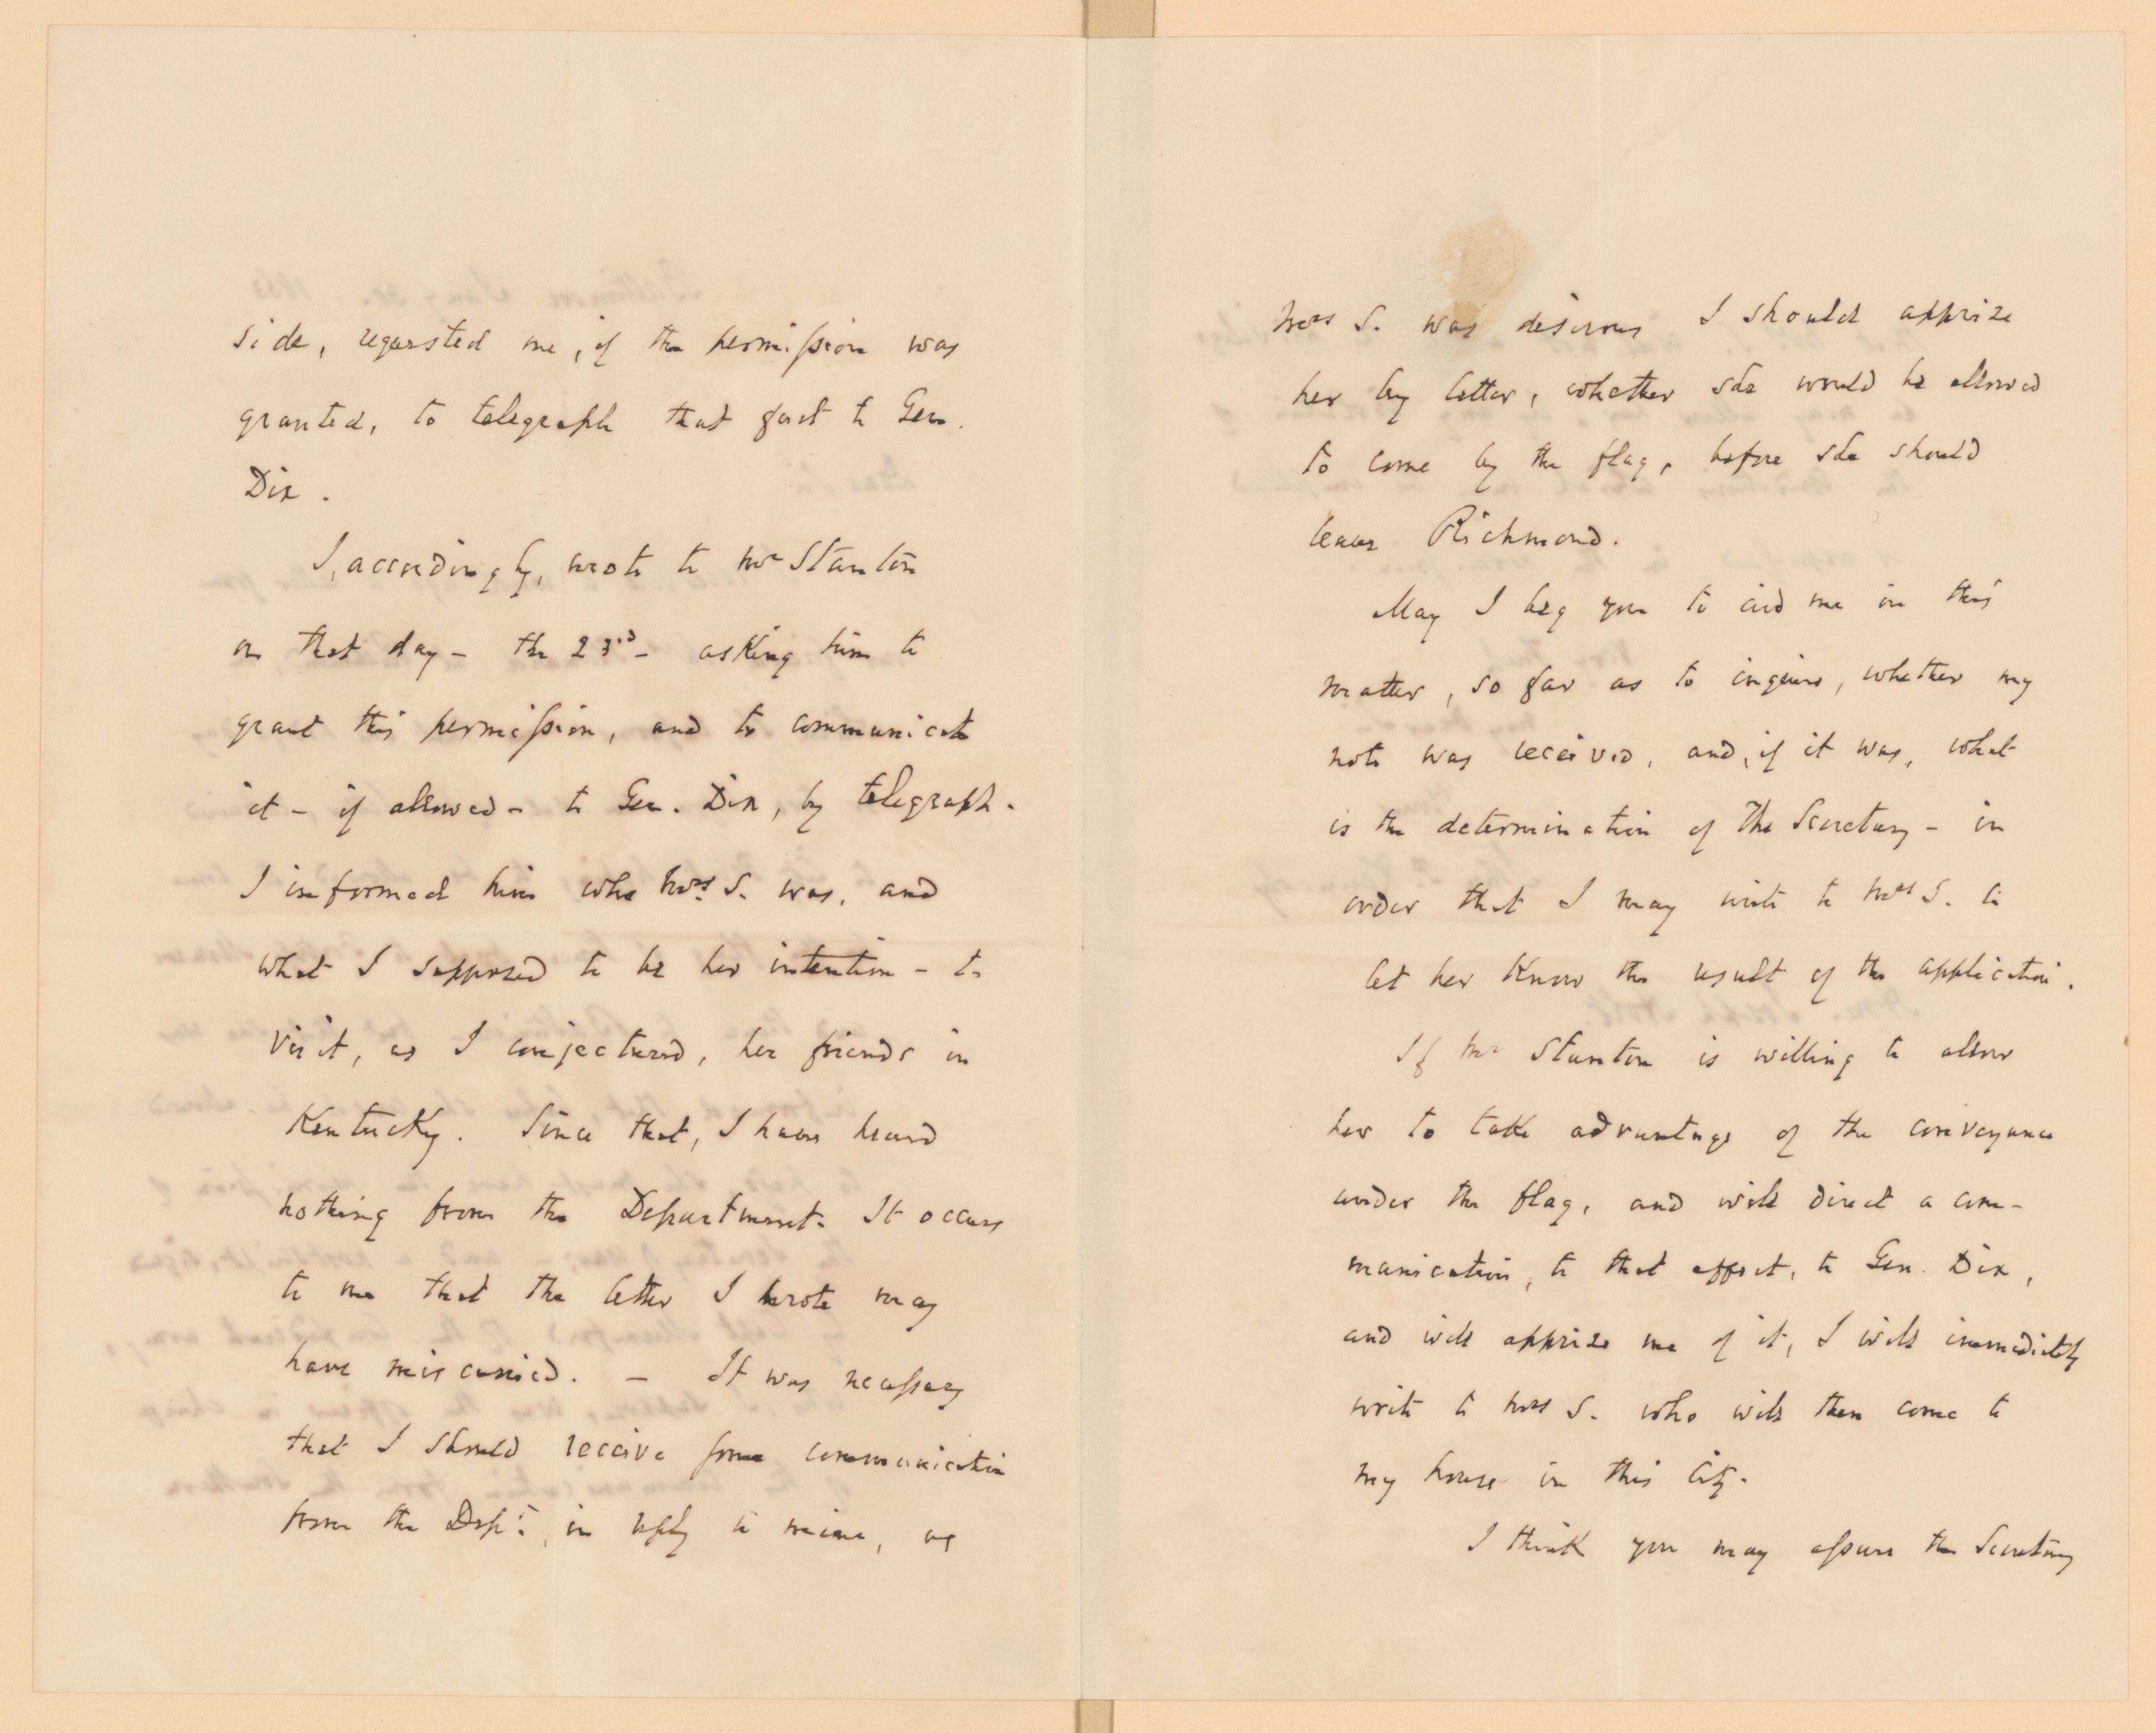 side, requested me, if the permission was
granted, to telegraph that fact to Gen.
Dix.
I, accordingly, wrote to Mr Stanton
on that day – the 23rd – asking him to
grant this permission, and to communicate
it – if allowed – to Gen. Dix, by telegraph.
I informed him who Mrs. S. was, and
what I supposed to be her intention – to
visit, as I conjectured, her friends in
Kentucky. Since that, I have heard
nothing from the Department. It occurs
to me that the letter I wrote may
have miscarried. – It was necessary
that I should receive some communication
from the Dept., in reply to mine, as
Mrs S. was desirous I should apprize
her by letter, whether she would be allowed
to come by the flag, before she should
leave Richmond.
May I beg you to aid me in this
matter, so far as to inquire, whether my
note was received, and, if it was, what
is the determination of the Secretary – in
order that I may write to Mrs S. to
let her Know the result of the application.
If Mr Stanton is willing to allow
her to take advantage of the conveyance
under the flag, and will direct a com-
munication, to that effect, to Gen. Dix,
and will apprize me of it, I will immediately
write to Mrs S. who will then come to
my house in this City.
I think you may assure the Secretary